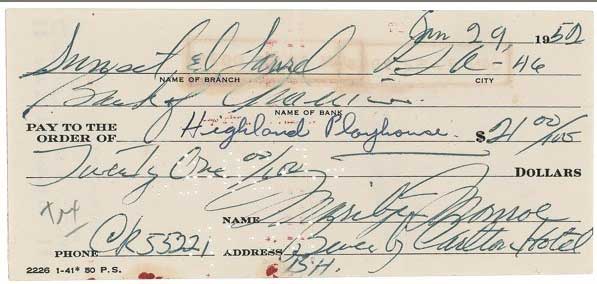 Jan 29, 1952
Sunset & Laurel L A - 46
NAME OF BRANCH CITY
Bank of America
NAME OF BANK
PAY TO THE ORDER OF Highland Playhouse $ 21 00/100
Twenty One 00/100 DOLLARS
NAME Marilyn Monroe
PHONE CR55221 ADDRESS Beverly Carlton Hotel
B.H.
2226 1-41* 50 P.S.